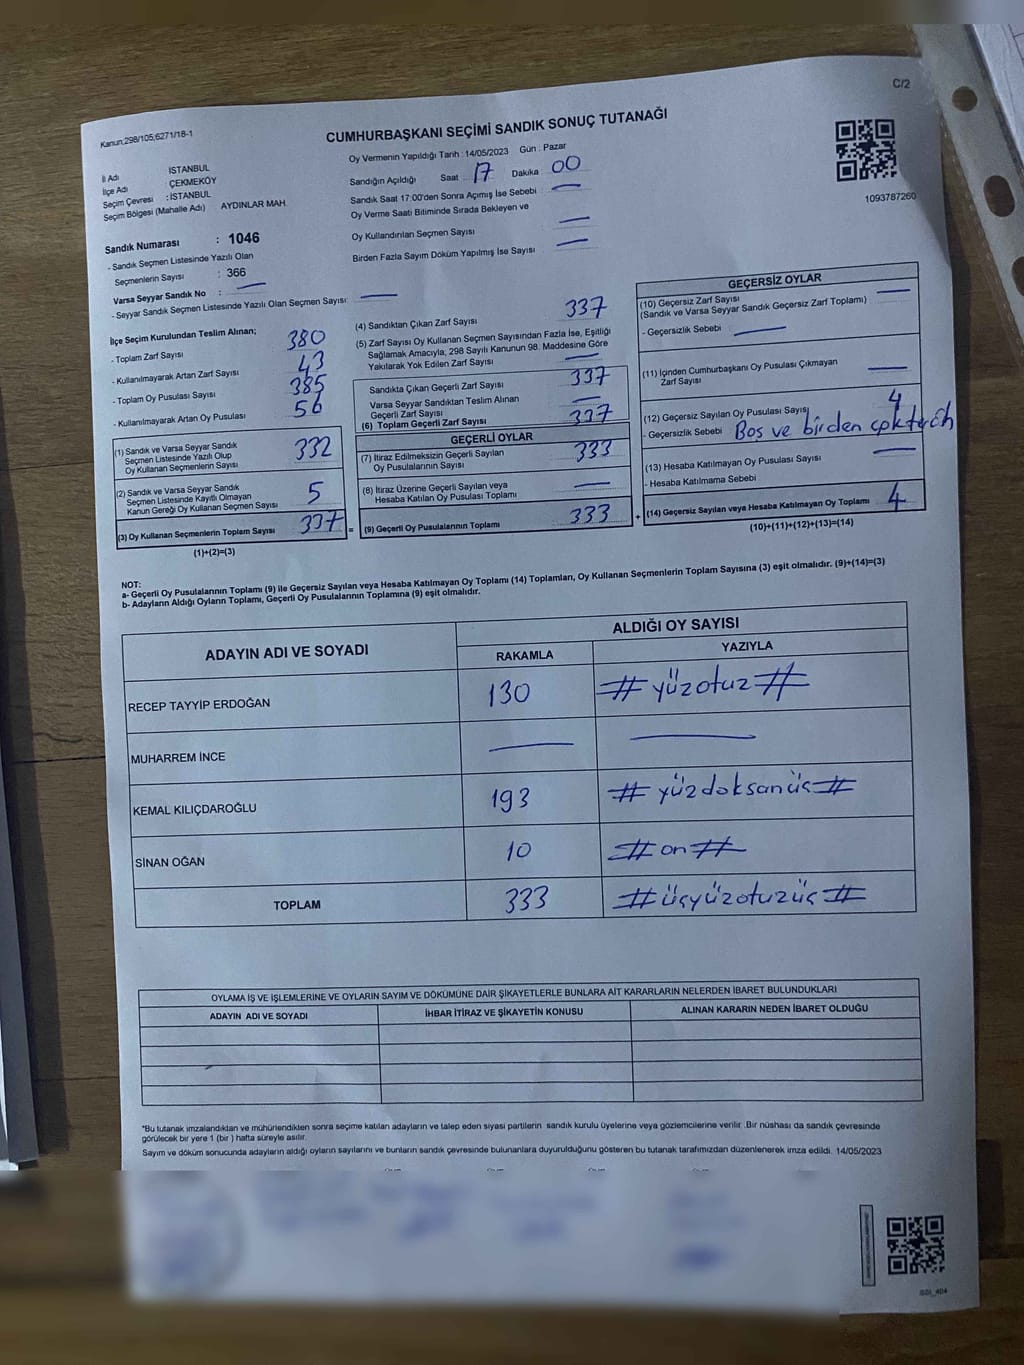 C/2
Kanun,298/105,6271/18-1
CUMHURBAŞKANI SEÇİMİ SANDIK SONUÇ TUTANAĞI
İl Adı İSTANBUL
İlçe Adı ÇEKMEKÖY
Seçim Çevresi : İSTANBUL
Seçim Bölgesi (Mahalle Adı) AYDINLAR MAH.
Oy Vermenin Yapıldığı Tarih : 14/05/2023 Gün : Pazar
Sandığın Açıldığı Saat 17 Dakika 00
Sandık Saat 17:00'den Sonra Açımış İse Sebebi
Oy Verme Saati Bitiminde Sırada Bekleyen ve
Oy Kullandırılan Seçmen Sayısı
Birden Fazla Sayım Döküm Yapılmış İse Sayısı
1093787260
Sandık Numarası : 1046
- Sandık Seçmen Listesinde Yazılı Olan
Seçmenlerin Sayısı : 366
Varsa Seyyar Sandık No :
- Seyyar Sandık Seçmen Listesinde Yazılı Olan Seçmen Sayısı:
İlçe Seçim Kurulundan Teslim Alınan;
- Toplam Zarf Sayısı 380
- Kullanılmayarak Artan Zarf Sayısı 43
- Toplam Oy Pusulası Sayısı 385
- Kullanılmayarak Artan Oy Pusulası 56
(1) Sandık ve Varsa Seyyar Sandık
Seçmen Listesinde Yazılı Olup
Oy Kullanan Seçmenlerin Sayısı 332
(2) Sandık ve Varsa Seyyar Sandık
Seçmen Listesinde Kayıtlı Olmayan
Kanun Gereği Oy Kullanan Seçmen Sayısı 5
(3) Oy Kullanan Seçmenlerin Toplam Sayısı 337 =
(1)+(2)=(3)
(4) Sandıktan Çıkan Zarf Sayısı 337
(5) Zarf Sayısı Oy Kullanan Seçmen Sayısından Fazla İse, Eşitliği
Sağlamak Amacıyla, 298 Sayılı Kanunun 98. Maddesine Göre
Yakılarak Yok Edilen Zarf Sayısı
Sandıkta Çıkan Geçerli Zarf Sayısı 337
Varsa Seyyar Sandıktan Teslim Alınan
Geçerli Zarf Sayısı
(6) Toplam Geçerli Zarf Sayısı 337
GEÇERLİ OYLAR
(7) İtiraz Edilmeksizin Geçerli Sayılan
Oy Pusulalarının Sayısı 333
(8) İtiraz Üzerine Geçerli Sayılan veya
Hesaba Katılan Oy Pusulası Toplamı
(9) Geçerli Oy Pusulalarının Toplamı 333 +
GEÇERSİZ OYLAR
(10) Geçersiz Zarf Sayısı
(Sandık ve Varsa Seyyar Sandık Geçersiz Zarf Toplamı)
- Geçersizlik Sebebi
(11) İçinden Cumhurbaşkanı Oy Pusulası Çıkmayan
Zarf Sayısı
(12) Geçersiz Sayılan Oy Pusulası Sayısı 4
- Geçersizlik Sebebi Boş ve birden çok tercih
(13) Hesaba Katılmayan Oy Pusulası Sayısı
- Hesaba Katılmama Sebebi
(14) Geçersiz Sayılan veya Hesaba Katılmayan Oy Toplamı 4
(10)+(11)+(12)+(13)=(14)
NOT:
a- Geçerli Oy Pusulalarının Toplamı (9) ile Geçersiz Sayılan veya Hesaba Katılmayan Oy Toplamı (14) Toplamları, Oy Kullanan Seçmenlerin Toplam Sayısına (3) eşit olmalıdır. (9)+(14)=(3)
b- Adayların Aldığı Oyların Toplamı, Geçerli Oy Pusulalarının Toplamına (9) eşit olmalıdır.
ADAYIN ADI VE SOYADI ALDIĞI OY SAYISI
RAKAMLA YAZIYLA
RECEP TAYYİP ERDOĞAN 130 # yüzotuz #
MUHARREM İNCE
KEMAL KILIÇDAROĞLU 193 # yüzdoksanüç #
SİNAN OĞAN 10 # on #
TOPLAM 333 # üçyüzotuzüç #
OYLAMA İŞ VE İŞLEMLERİNE VE OYLARIN SAYIM VE DÖKÜMÜNE DAİR ŞİKAYETLERLE BUNLARA AİT KARARLARIN NELERDEN İBARET BULUNDUKLARI
ADAYIN ADI VE SOYADI İHBAR İTİRAZ VE ŞİKAYETİN KONUSU ALINAN KARARIN NEDEN İBARET OLDUĞU
*Bu tutanak imzalandıktan ve mühürlendikten sonra seçime katılan adayların ve talep eden siyasi partilerin sandık kurulu üyelerine veya gözlemcilerine verilir .Bir nüshası da sandık çevresinde
görülecek bir yere 1 (bir ) hafta süreyle asılır.
Sayım ve döküm sonucunda adayların aldığı oyların sayılarını ve bunların sandık çevresinde bulunanlara duyurulduğunu gösteren bu tutanak tarafımızdan düzenlenerek imza edildi. 14/05/2023